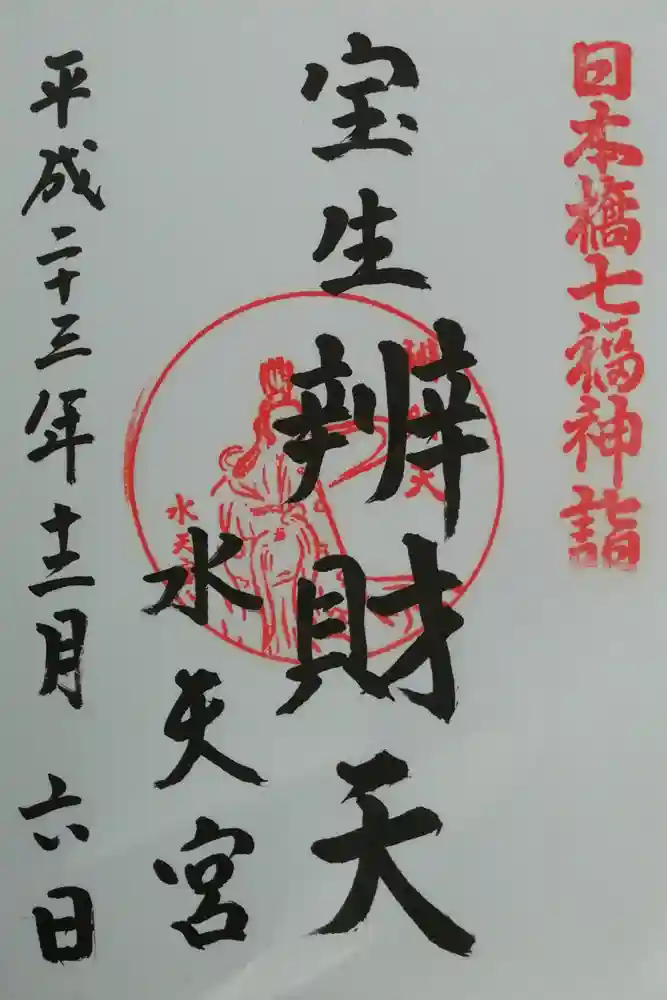 日本橋七福神詣
宝生辨財天
天
水天
水天宮
平成二十三年十二月六日